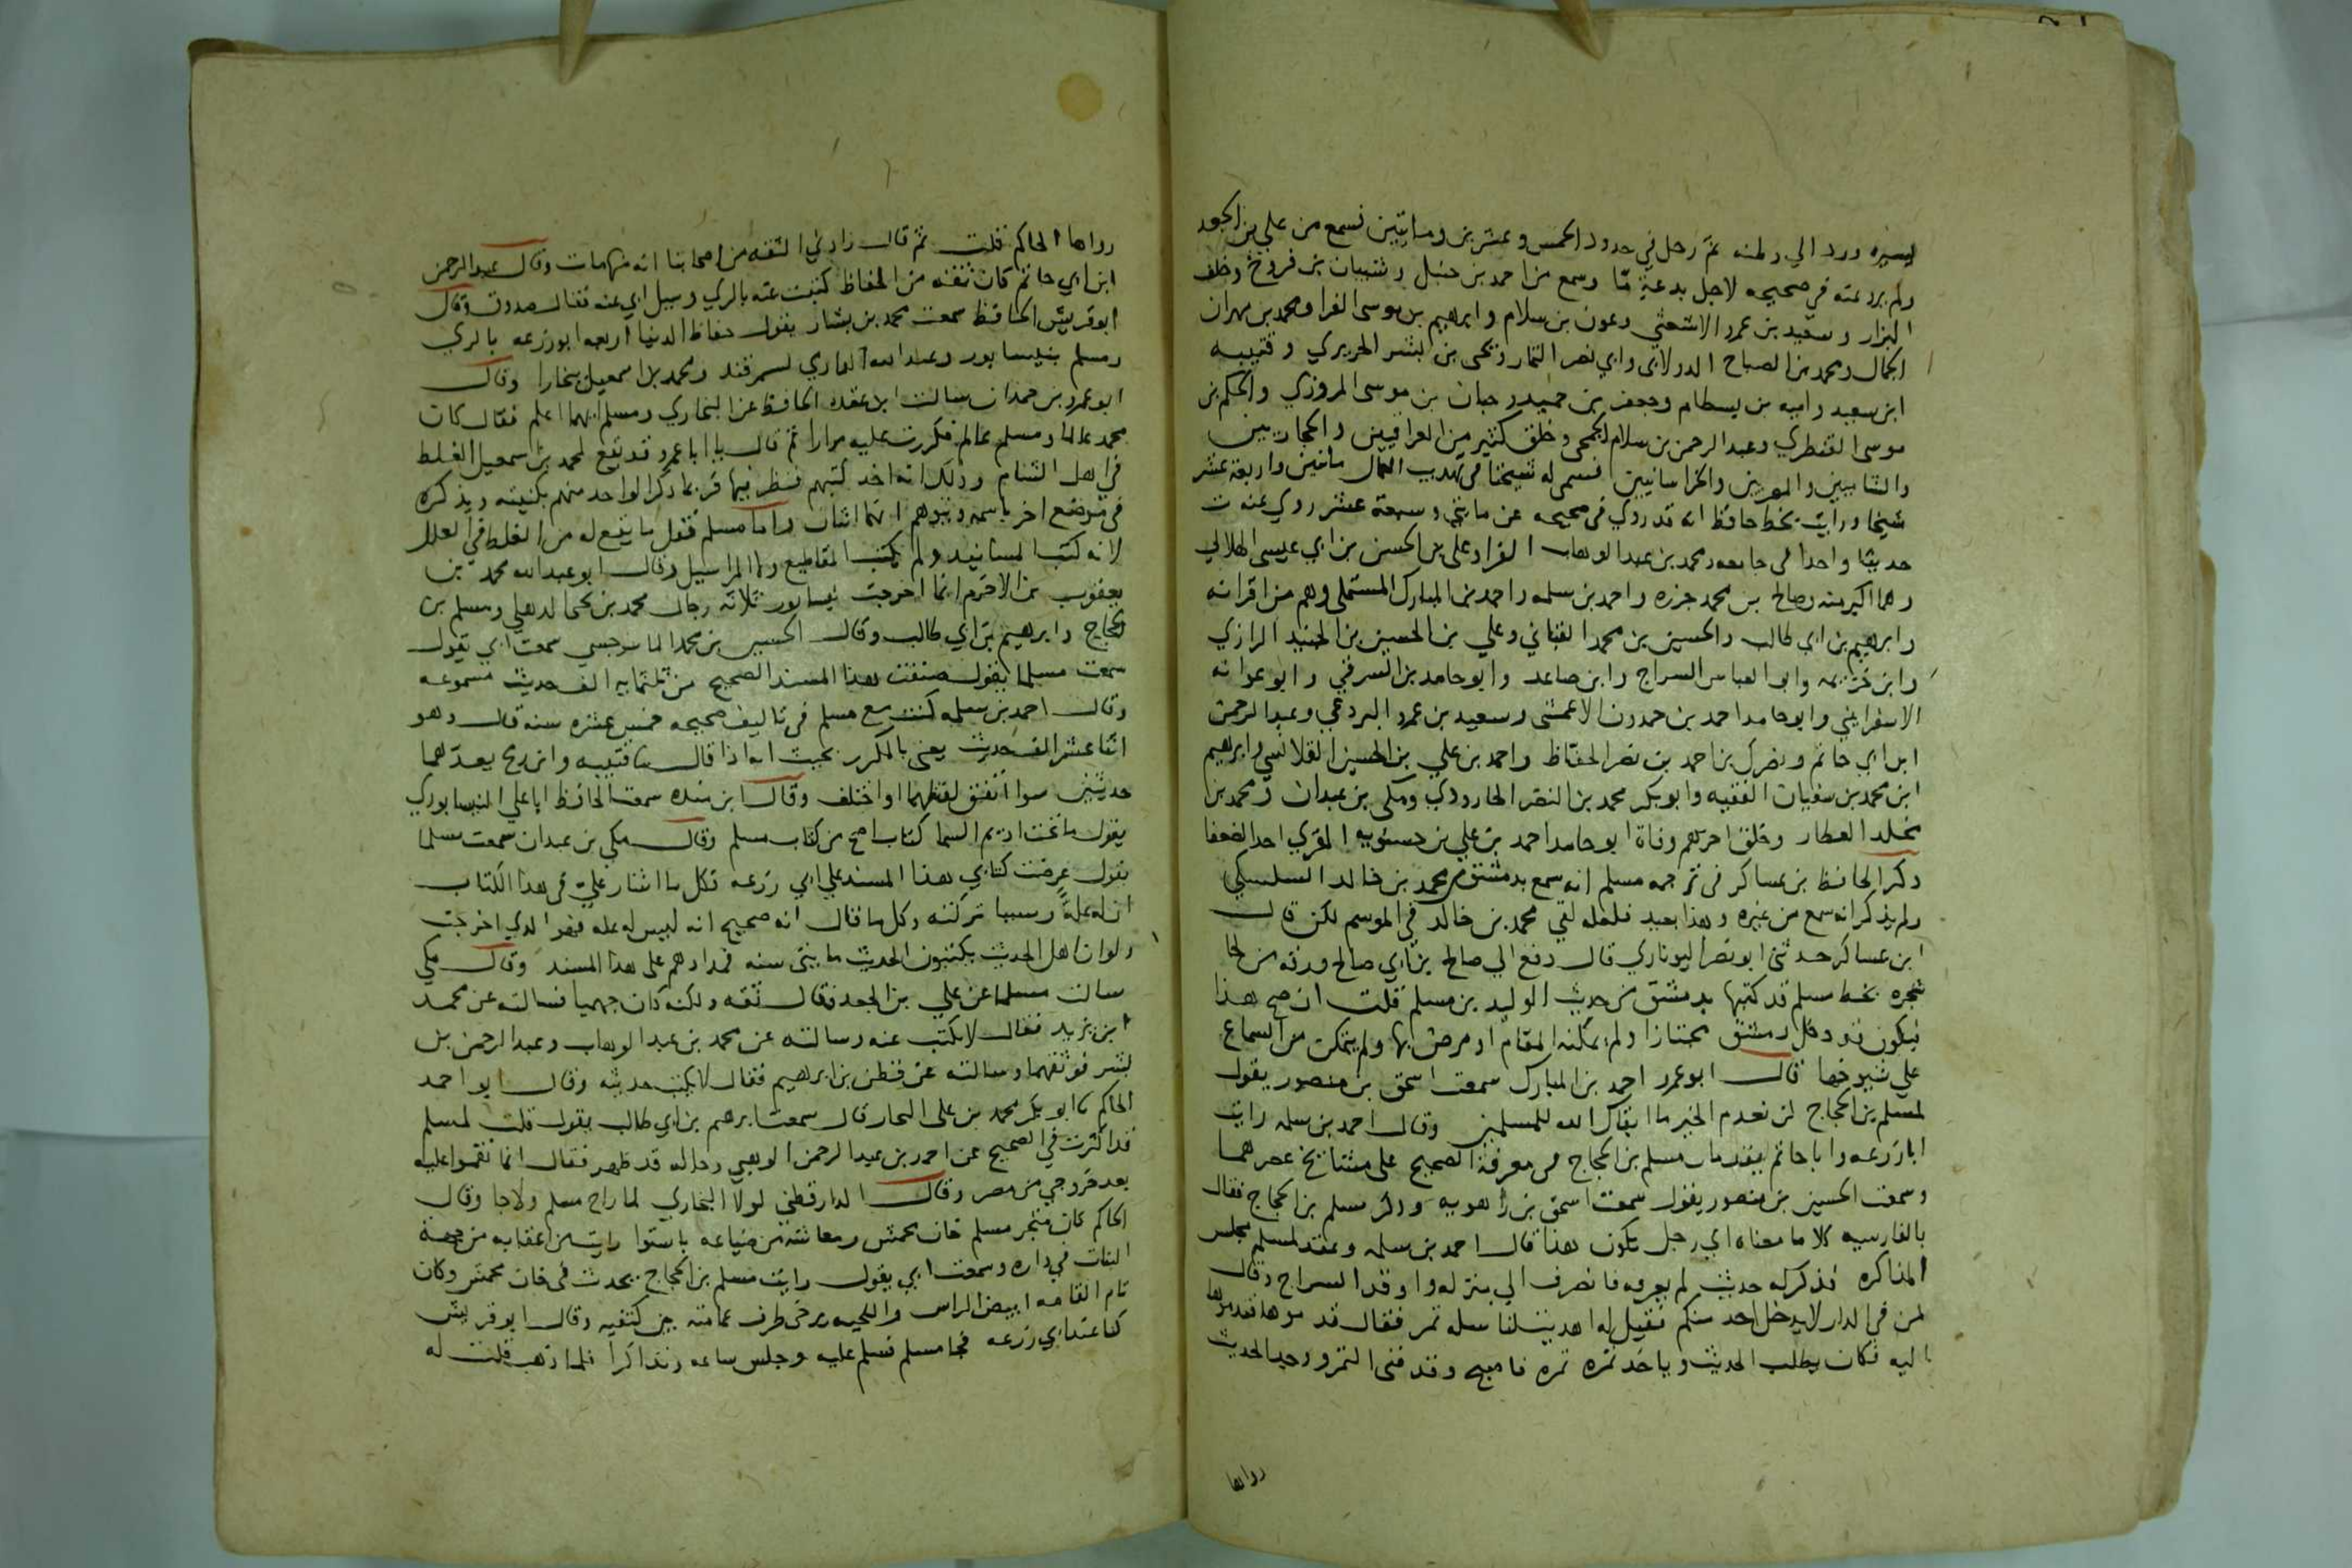 يسيره ورد الي وطنه ثم رحل في حدود الخمس وعشرين ومايتين فسمع من علي بن الجعد
ولم يرو عنه في صحيحه لاجل بدعة مّا وسمع من احمد بن حنبل وشيبان بن فروخ وخلف
البزار وسعيد بن عمرو الاشعثي وعون بن سلام وابرهيم بن موسى الفرا ومحمد بن مهران
الجمال ومحمد بن الصباح الدولابى وابي نصر التمار ويحى بن بشر الحريري وقتيبه
ابن سعيد واميه بن بسطام وجعفر بن حميد وحبان بن موسى المروزي والحكم بن
موسى القنطري وعبد الرحمن بن سلام الجمحى وخلق كثير من العراقيين والحجازيين
والشاميين والمصريين والخراسانيين فسمى له شيخنا في تهذيب الكمال مائتين واربعة عشر
شيخا ورايت بخط حافظ انه قد روي في صحيحه عن مائتي وسبعة عشر روي عنه ت
حديثا واحدا في جامعه ومحمد بن عبد الوهاب الفرا وعلى بن الحسن بن ابي عيسى الهلالي
وهما اكبر منه وصالح بن محمد جزره واحمد بن سلمه واحمد بن المبارك المستملي وهم من اقرانه
وابرهيم بن ابي طالب والحسين بن محمد القباني وعلي بن الحسين بن الجنيد الرازي
وابن خزيمه وابو العباس السراج وابن صاعد وابو حامد بن الشرقي وابو عوانه
الاسفرايني وابو حامد احمد بن حمدون الاعمشى وسعيد بن عمرو البردعي وعبد الرحمن
ابن ابي حاتم ونصرك بن احمد بن نصر الحفّاظ واحمد بن علي بن الحسين القلانسي وابرهيم
ابن محمد بن سفيان الفقيه وابو بكر محمد بن النضر الجارودي ومكى بن عبدان ومحمد بن
مخلد العطار وخلق اخرهم وفاة ابو حامد احمد بن علي بن حسنويه المقري احد الضعفا
ذكر الحافظ بن عساكر في ترجمه مسلم انه سمع بدمشق من محمد بن خالد السكسكي
ولم يذكر انه سمع من غيره وهذا بعيد فلعله لقي محمد بن خالد في الموسم لكن قال
ابن عساكر حدثني ابو نصر اليوناري قال دفع الي صالح بن ابي صالح ورقه من لحا
شجره بخط مسلم قد كتبها بدمشق من حديث الوليد بن مسلم قلت ان صح هذا
فيكون قد دخل دمشق مجتازا ولم يمكنه المقام او مرض بها ولم يتمكن من السماع
علي شيوخها قال ابو عمرو احمد بن المبارك سمعت اسحق بن منصور يقول
لمسلم بن الحجاج لن نعدم الخير ما ابقاك الله للمسلمين وقال احمد بن سلمه رايت
ابا زرعه وابا حاتم يقدمان مسلم بن الحجاج في معرفة الصحيح على مشايخ عصرهما
وسمعت الحسين بن منصور يقول سمعت اسحق بن راهويه وذكر مسلم بن الحجاج فقال
بالفارسيه كلاما معناه اي رجل يكون هذا قال احمد بن سلمه وعقد لمسلم مجلس
المذاكره فذكر له حديث لم يعرفه فانصرف الي منزله واوقد السراج وقال
لمن في الدار لا يدخل احد منكم فقيل له اهديت لنا سله تمر فقال قدموها فقدموها
اليه فكان يطلب الحديث وياخذ تمره تمره فاصبح وقد فني التمر ووجد الحديث
رواها
رواها الحاكم قلت ثم قال زادني الثقه من اصحابنا انه منها مات وقال عبد الرحمن
ابن ابي حاتم كان ثقه من الحفاظ كتبت عنه بالري وسيل ابي عنه فقال صدوق وقال
ابو قريش الحافظ سمعت محمد بن بشار يقول حفاظ الدنيا اربعه ابو زرعه بالري
ومسلم بنيسابور وعبد الله الدارمي بسمرقند ومحمد بن اسمعيل ببخارا وقال
ابو عمرو بن حمدان سالت ابن عقده الحافظ عن البخاري ومسلم ايهما اعلم فقال كان
محمد عالما ومسلم عالم فكررت عليه مرارا ثم قال يا ابا عمرو قد يقع لمحمد بن اسمعيل الغلط
في اهل الشام وذلك انه اخذ كتبهم فنظر فيها فربما ذكر الواحد منهم بكنيته ويذكره
في موضع اخر باسمه ويتوهم انهما اثنان واما مسلم فقل ما يقع له من الغلط في العلل
لانه كتب المسانيد ولم يكتب المقاطيع ولا المراسيل وقال ابو عبد الله محمد بن
يعقوب بن الاخرم انما اخرجت نيسابور ثلاثه رجال محمد بن يحيى الذهلي ومسلم بن
الحجاج وابرهيم بن ابي طالب وقال الحسين بن محمد الماسرجسي سمعت ابي يقول
سمعت مسلما يقول صنفت هذا المسند الصحيح من ثلثمايه الف حديث مسموعه
وقال احمد بن سلمه كنت مع مسلم في تاليف صحيحه خمس عشره سنه قال وهو
اثنا عشر الف حديث يعني بالمكرر بحيث انه اذا قال ثنا قتيبه وابن رمح يعدّهما
حديثين سوا اتفق لفظهما او اختلف وقال ابن منده سمعت الحافظ ابا علي النيسابوري
يقول ما تحت اديم السما كتاب اصح من كتاب مسلم وقال مكي بن عبدان سمعت مسلما
يقول عرضت كتابي هذا المسند علي ابي زرعه فكل ما اشار عليّ في هذا الكتاب
ان له علةً وسببا تركته وكل ما قال انه صحيح انه ليس له علة فهو الذي اخرجت
ولو ان اهل الحديث يكتبون الحديث مايتي سنه فمدارهم على هذا المسند وقال مكي
سالت مسلما عن علي بن الجعد فقال ثقه ولكنه كان جهميا فسالته عن محمد
ابن يزيد فقال لا يكتب عنه وسالته عن محمد بن عبد الوهاب وعبد الرحمن بن
بشر فوثقهما وسالته عن قطن بن ابرهيم فقال لا يكتب حديثه وقال ابو احمد
الحاكم ثنا ابو بكر محمد بن على النجار قال سمعت ابرهيم بن ابي طالب يقول قلت لمسلم
قد اكثرت في الصحيح عن احمد بن عبد الرحمن الوهبي وحاله قد ظهر فقال انما نقموا عليه
بعد خروجي من مصر وقال الدارقطني لولا البخاري لما راح مسلم ولا جا وقال
الحاكم كان متجر مسلم خان محمش ومعاشه من ضياعه باستوا رايت من اعقابه من جهة
البنات في داره وسمعت ابي يقول رايت مسلم بن الحجاج يحدث في خان محمش وكان
تام القامه ابيض الراس واللحيه يرخى طرف عمامته بين كتفيه وقال ابو قريش
كنا عند ابي زرعه فجا مسلم فسلم عليه وجلس ساعه وتذاكرا فلما ذهب قلت له